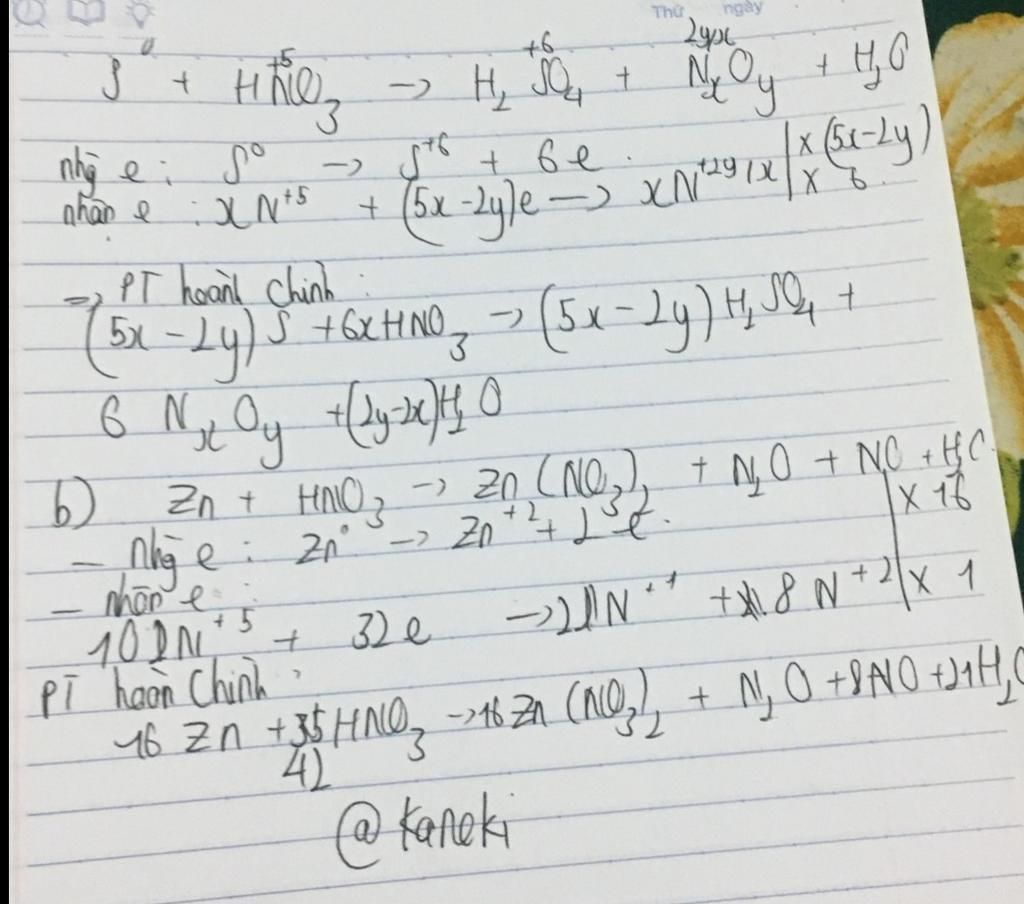 Thứ ngày
0 +5 +6 2y/x
S + HNO3 -> H2SO4 + NxOy + H2O
nhg e : S⁰ -> S⁺⁶ + 6e . | x (5x-2y)
nhận e : xN⁺⁵ + (5x-2y)e -> xN⁺²ʸ/ˣ | x 6
=> PT hoành chỉnh :
(5x-2y) S + 6xHNO3 -> (5x-2y) H2SO4 +
6 NxOy + (2y-2x)H2O
b) Zn + HNO3 -> Zn(NO3)2 + N2O + NO + H2O
- nhg e : Zn⁰ -> Zn⁺² + 2e. | x 16
- nhận e :
10N⁺⁵ + 32e -> 2N⁺¹ + 8N⁺² | x 1
PT hoàn chỉnh :
16 Zn + 35HNO3 -> 16Zn(NO3)2 + N2O + 8NO + 21H2O
42
@Kaneki